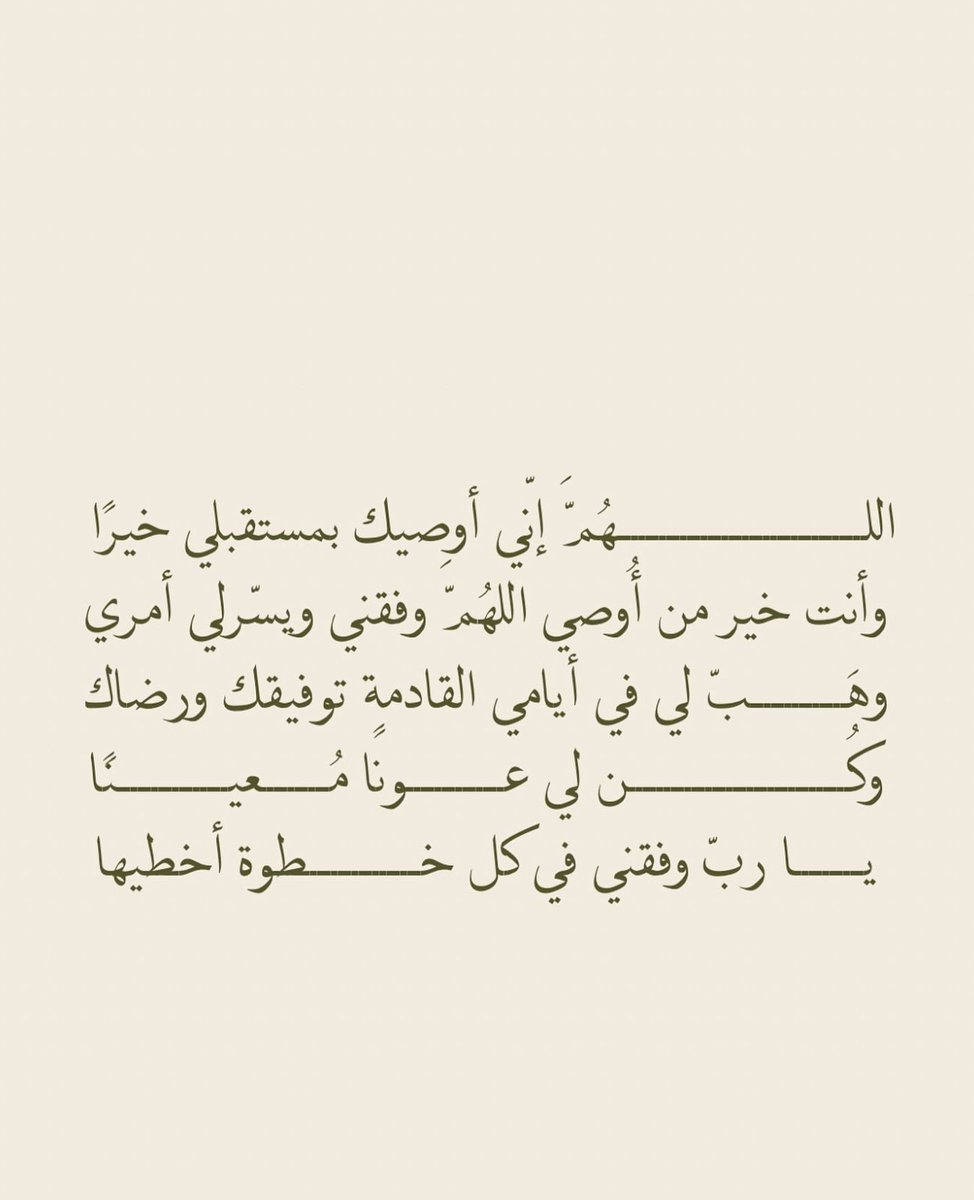 اللـــــــــــــــــــــــهُمَّ إنّي أوصِيك بمستقبلي خيرًا
وأنت خير من أُوصي اللهُمّ وفقني ويسّرلي أمري
وهَـــــــــبّ لي في أيامي القادمةِ توفيقك ورضاك
وكُــــــــــــــــــــن لي عـــــــــونًا مُـــــــعيـــــــــــنًا
يـــــــا ربّ وفقني في كل خـــــــــــطوة أخطيها